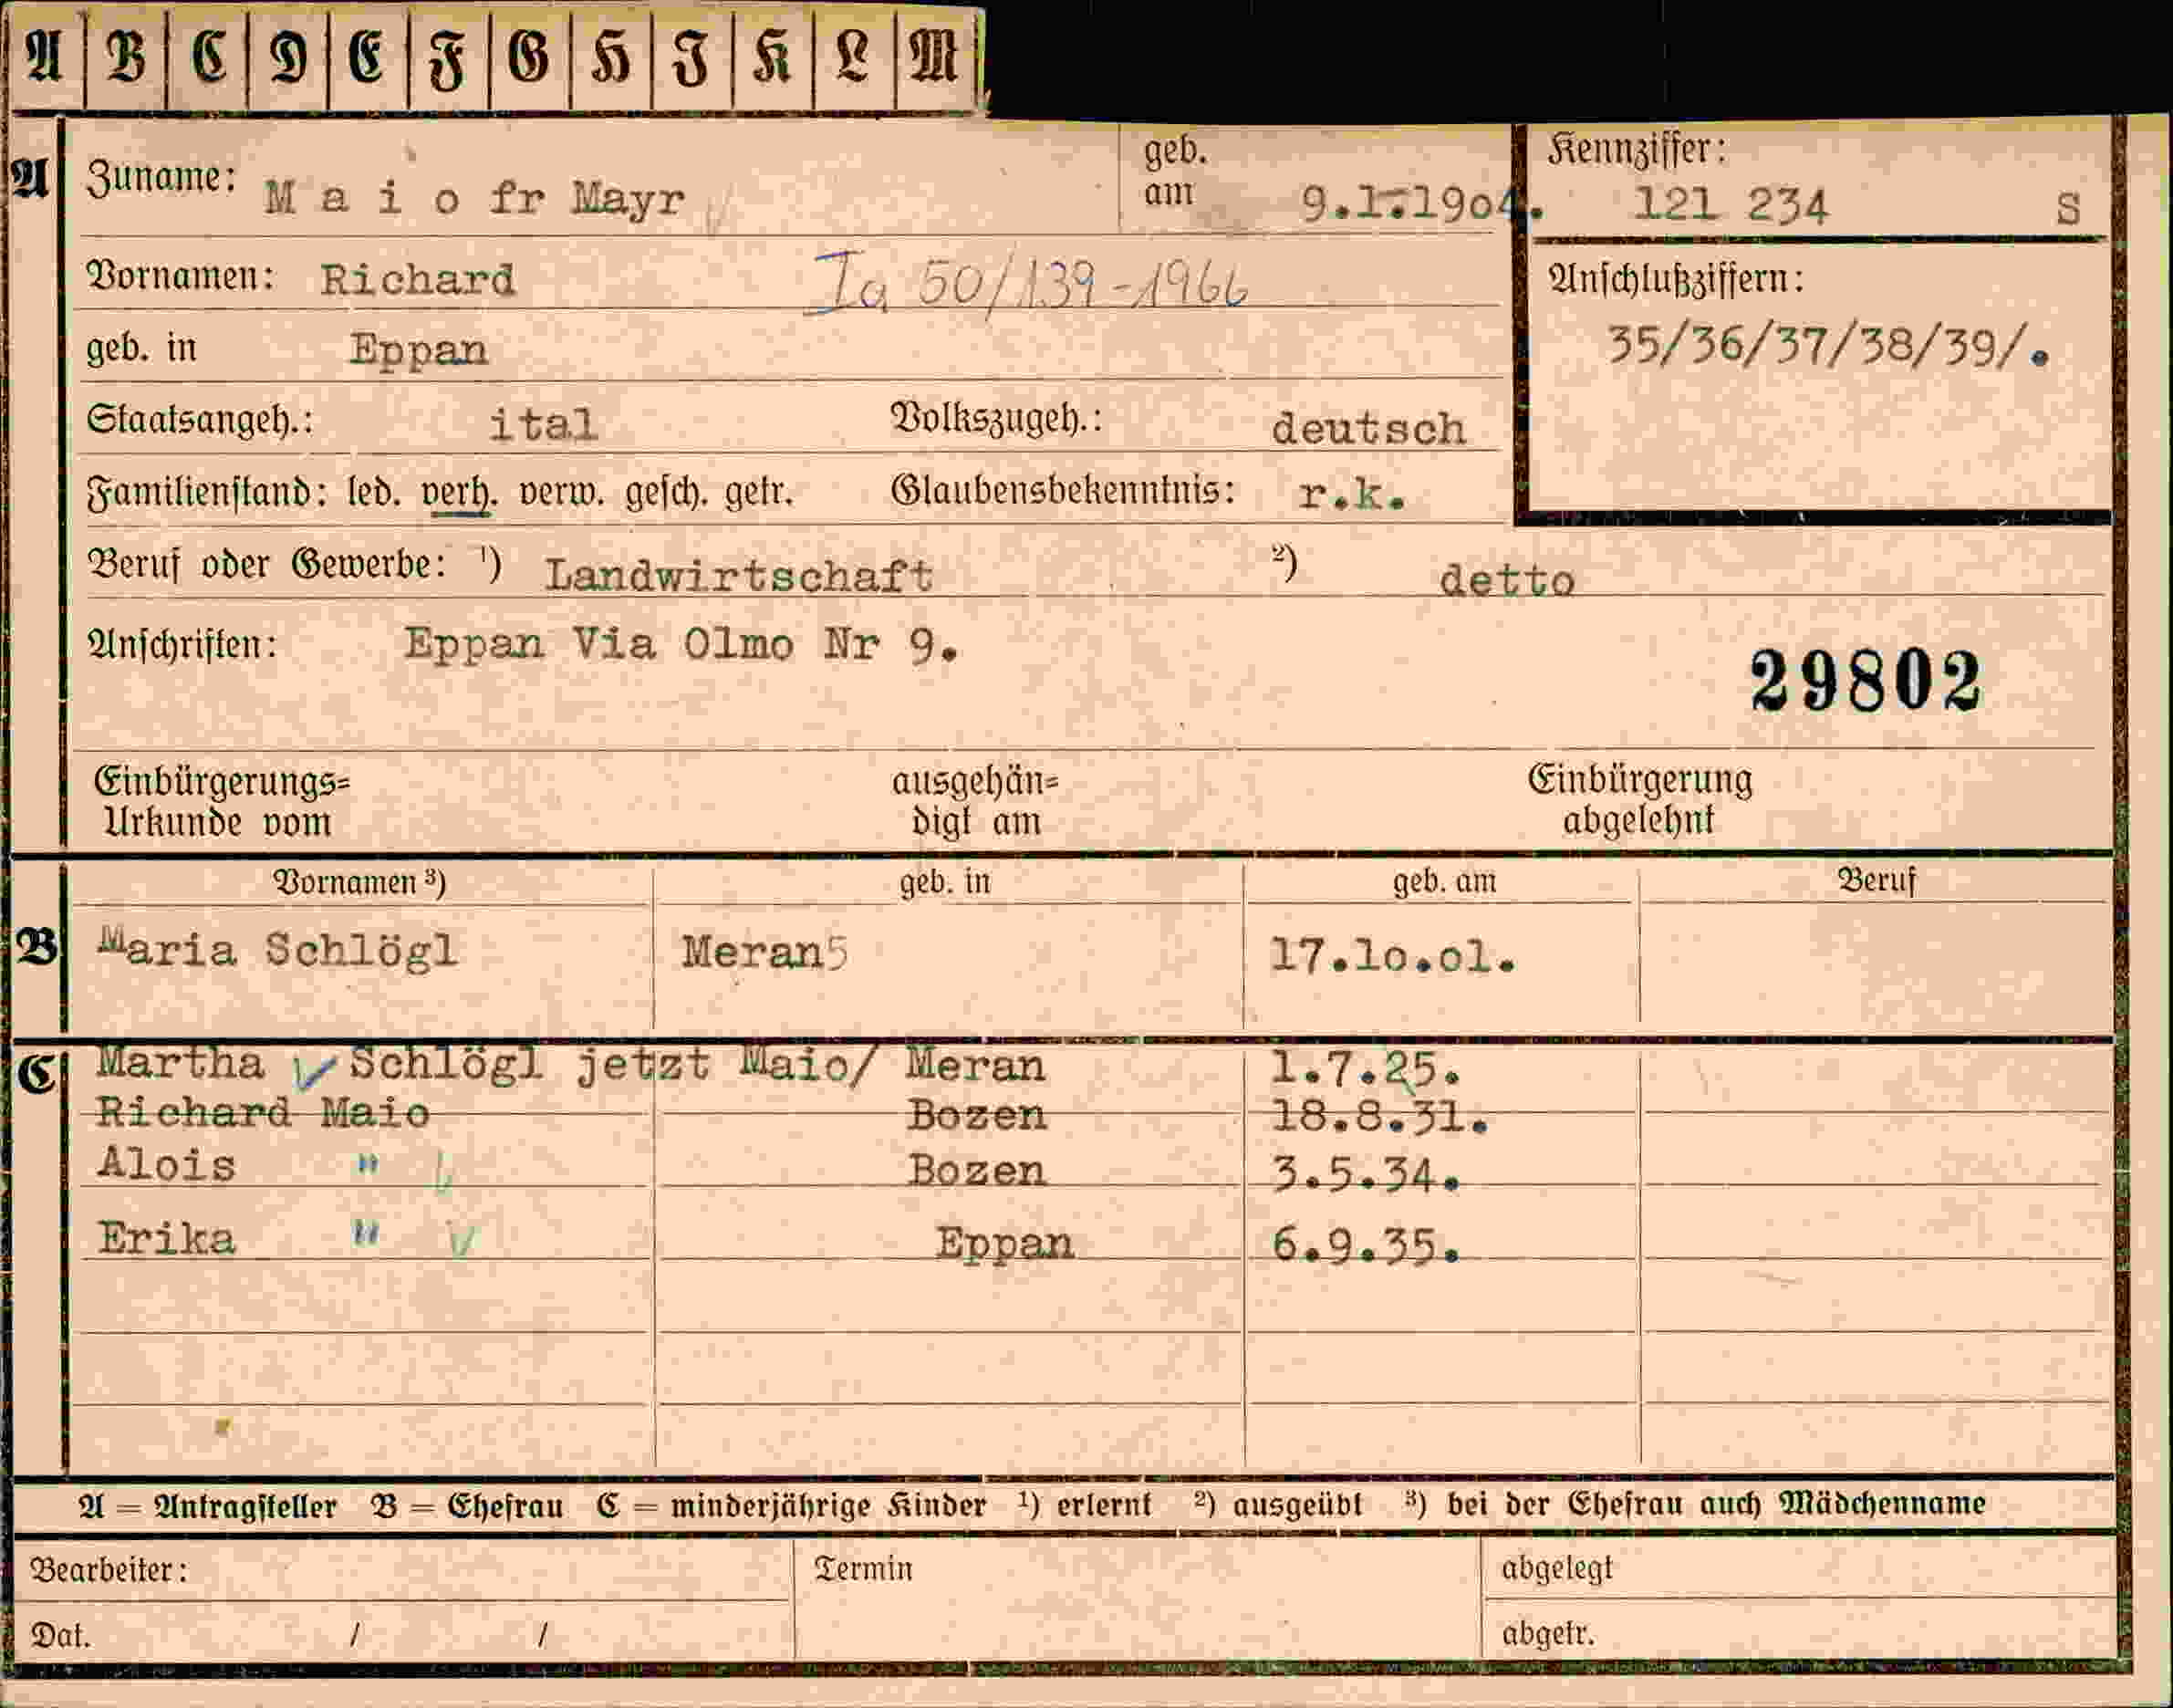 A B C D E F G H I K L M
A Zuname: M a i o fr Mayr geb. am 9.1.1904. Kennziffer: 121 234 S
Vornamen: Richard Ia 50/139-1966 Anschlußziffern:
35/36/37/38/39/.
geb. in Eppan
Staatsangeh.: ital Volkszugeh.: deutsch
Familienstand: led. verh. verw. gesch. getr. Glaubensbekenntnis: r.k.
Beruf oder Gewerbe: ¹) Landwirtschaft ²) detto
Anschriften: Eppan Via Olmo Nr 9.
29802
Einbürgerungs= ausgehän= Einbürgerung
Urkunde vom digt am abgelehnt
Vornamen ³) geb. in geb. am Beruf
B Maria Schlögl Meran5 17.10.01.
C Martha Schlögl jetzt Maio/ Meran 1.7.25.
Richard Maio Bozen 18.8.31.
Alois " Bozen 3.5.34.
Erika " Eppan 6.9.35.
A = Antragsteller B = Ehefrau C = minderjährige Kinder ¹) erlernt ²) ausgeübt ³) bei der Ehefrau auch Mädchenname
Bearbeiter: Termin abgelegt
Dat. / / abgetr.